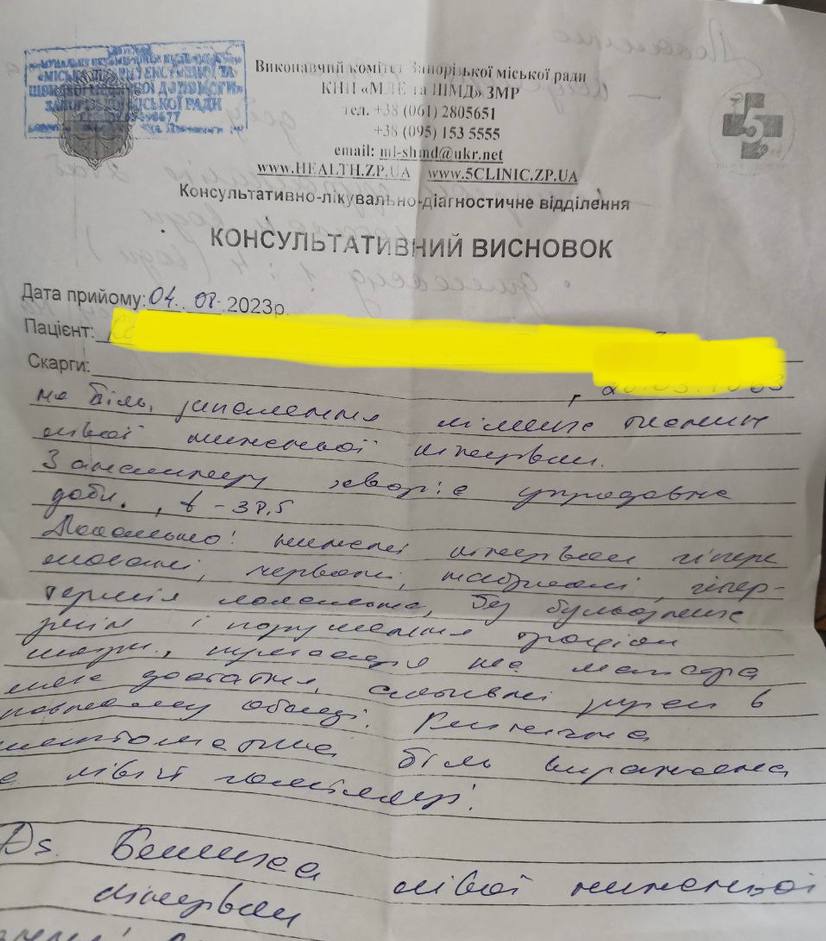 МІСЬКА ЛІКАРНЯ ЕКСТРЕНОЇ ТА
ШВИДКОЇ МЕДИЧНОЇ ДОПОМОГИ»
ЗАПОРІЗЬКОЇ МІСЬКОЇ РАДИ
Виконавчий комітет Запорізької міської ради
КНП «МЛЕ та ШМД» ЗМР
тел. +38 (061) 2805651
+38 (095) 153 5555
email: ml-shmd@ukr.net
www.HEALTH.ZP.UA www.5CLINIC.ZP.UA
Консультативно-лікувально-діагностичне відділення
КОНСУЛЬТАТИВНИЙ ВИСНОВОК
Дата прийому: 04. 08 .2023р.
Пацієнт:
Скарги:
на біль, запалення тканин
лівої нижньої кінцівки.
З анамнезу хворіє упродовж
доби. , t - 38,5
Локально: нижні кінцівки
червоні, набряклі, гіпер-
термія локальна, без бульозних
змін і порушення трофіки
шкіри,
достатня, активні рухи в
повному обсязі. Клінічна
симптоматика більш виражена
в лівій гомілці.
Ds. Бешиха лівої нижньої
кінцівки